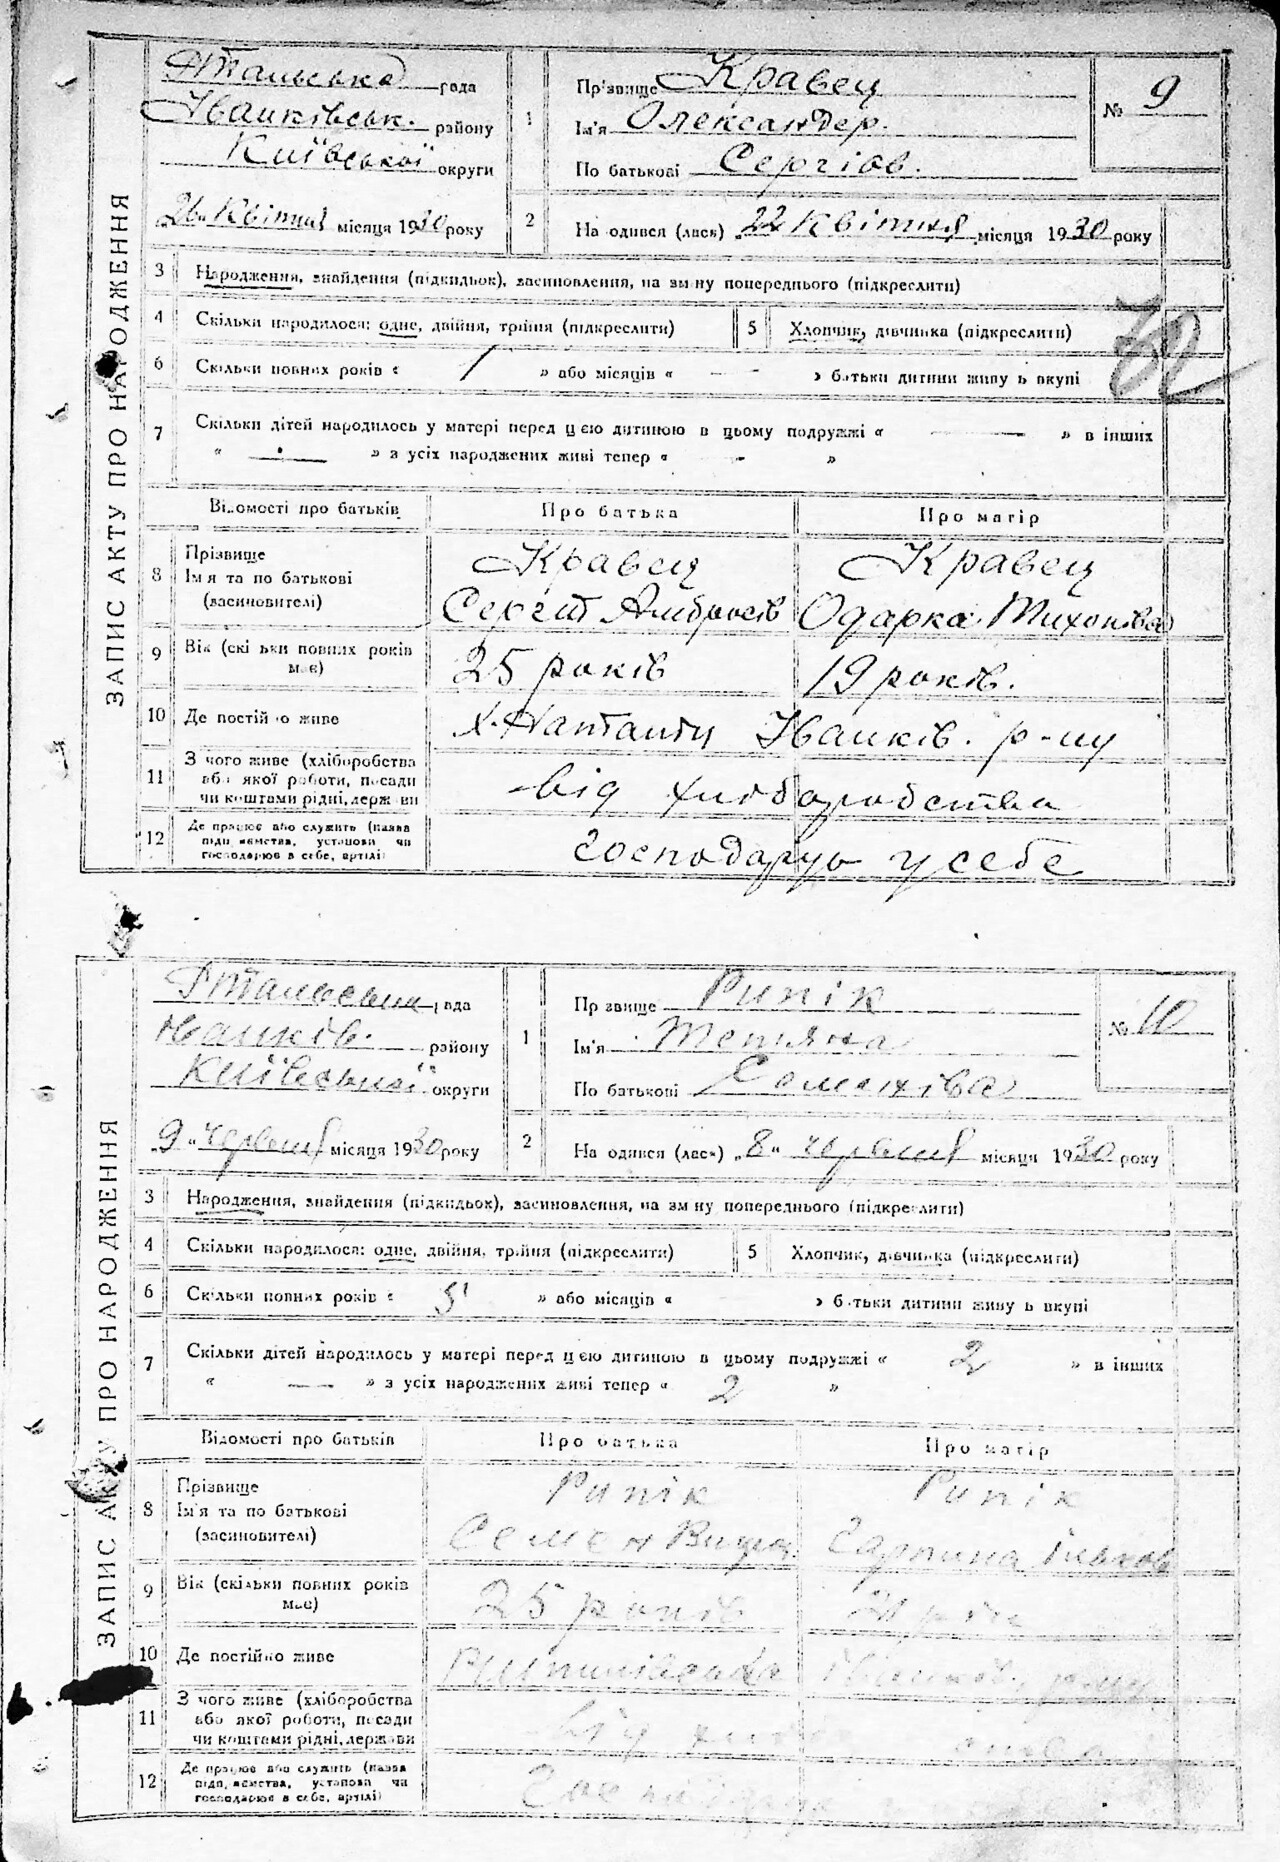 ЗАПИС АКТУ ПРО НАРОДЖЕННЯ
рада
Іванківськ. району
Київської округи
26 квітня місяця 1930 року
1 Прізвище Кравец
Ім'я Олександер.
По батькові Сергіов.
№ 9
2 На одився (лася) „22 квітня місяця 1930 року
3 Народження, знайдення (підкидьок), засиновлення, на зм ну попереднього (підкреслити)
4 Скільки народилося: одне, двійня, трійня (підкреслити)
5 Хлопчик, дівчинка (підкреслити)
6 Скільки повних років « 1 » або місяців « — » батьки дитини живу ь вкупі
7 Скільки дітей народилось у матері перед цією дитиною в цьому подружжі « — » в інших
« — » з усіх народжених живі тепер « - »
Відомості про батьків Про батька Про матір
8 Прізвище
Ім'я та по батькові
(засиновителі)
Кравец
Сергій Амбросів
Кравец
Одарка Тихонівна
9 Вік (скі ьки повних років має)
25 років 19 років.
10 Де постійно живе
х. Іванків. р-ну
11 З чого живе (хліборобства
або якої роботи, посади
чи коштами рідні, держави
від хліборобства
12 Де працює або служить (назва
підп.иємства, установи чи
господарює в себе, артілі)
господарую у себе
ЗАПИС АКТУ ПРО НАРОДЖЕННЯ
рада
Іванків. району
Київської округи
„9 " червня місяця 1930 року
1 Пр звище Рипік
Ім'я Тетяна
По батькові Семенівна
№ 10
2 На одився (лася) „8" червня місяця 1930 року
3 Народження, знайдення (підкидьок), засиновлення, на зм ну попереднього (підкреслити)
4 Скільки народилося: одне, двійня, трійня (підкреслити)
5 Хлопчик, дівчинка (підкреслити)
6 Скільки повних років « 5 » або місяців « » батьки дитини живу ь вкупі
7 Скільки дітей народилось у матері перед цією дитиною в цьому подружжі « 2 » в інших
« — » з усіх народжених живі тепер « 2 »
Відомості про батьків Про батька Про матір
8 Прізвище
Ім'я та по батькові
(засиновителі)
Рипік
Семен
Рипік
Гарпина
9 Вік (скільки повних років має)
25 років
10 Де постійно живе
11 З чого живе (хліборобства
або якої роботи, посади
чи коштами рідні, держави
від
12 Де працює або служить (назва
підп.иємства, установа чи
господарює в себе, артілі)